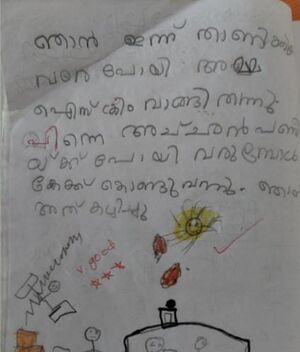 ഞാൻ ഇന്ന്
വരെ പോയി അമ്മ
ഐസ്ക്രീം വാങ്ങി തന്നു.
പിന്നെ അച്ചൻ പണി
യ്ക്ക് പോയി വരുമ്പോൾ
കേക്ക് കൊണ്ടുവന്നു. ഞാ
അത് കഴിച്ചു
v. good